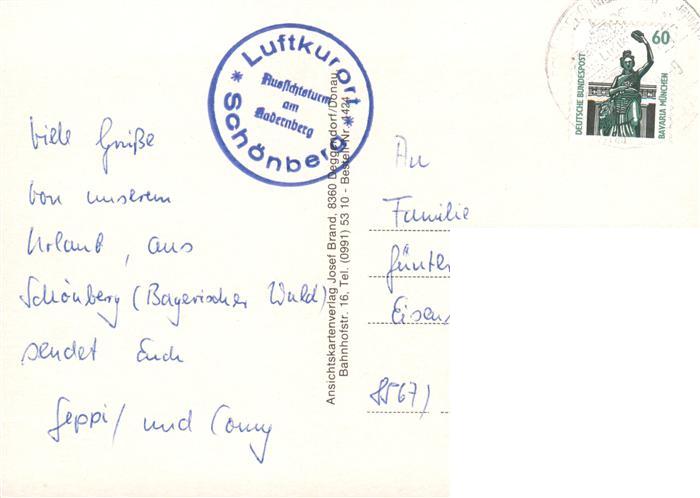 Viele Grüße
von unserem
Urlaub, aus
Schönberg (Bayerischer Wald)
sendet Euch
Seppi / und Conny
Luftkurort
Aussichtsturm
am
Kadernberg
* Schönberg *
Ansichtskartenverlag Josef Brand, 8360 Deggendorf/Donau
Bahnhofstr. 16, Tel. (0991) 53 10 - Bestell-Nr. 4424
60
DEUTSCHE BUNDESPOST
BAVARIA MÜNCHEN
An
Familie
Günther
Eisens
8567)